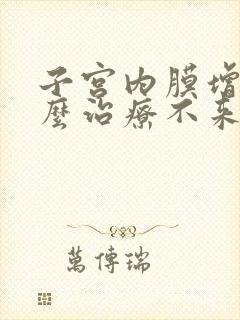 子宫内膜增
麽治療不来
萬傳瑞